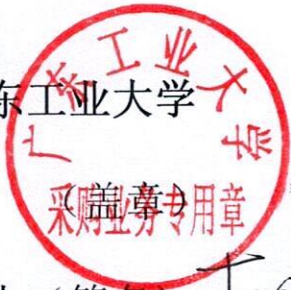 东工业大学
广东工业大学
（盖章）
采购业务专用章